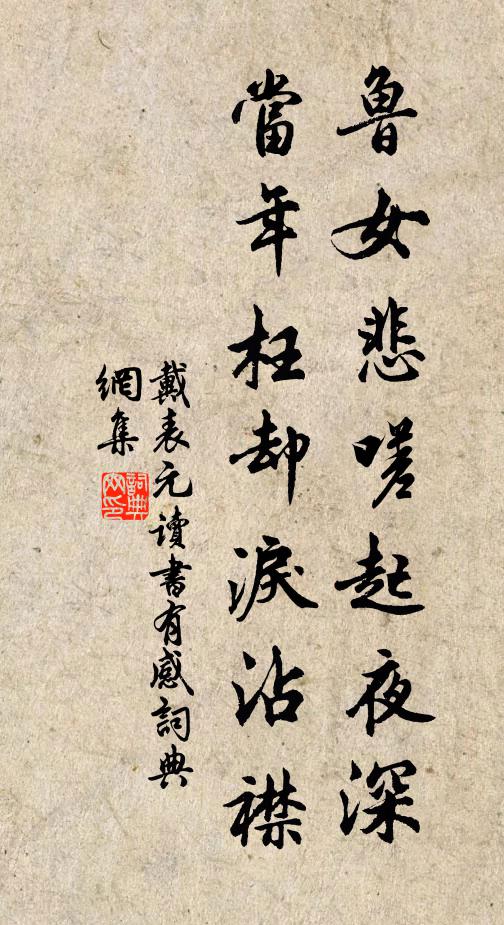 魯女悲嗟起夜深
當年枉却淚沾襟
戴表元讀書有感詞典
網集
詞典